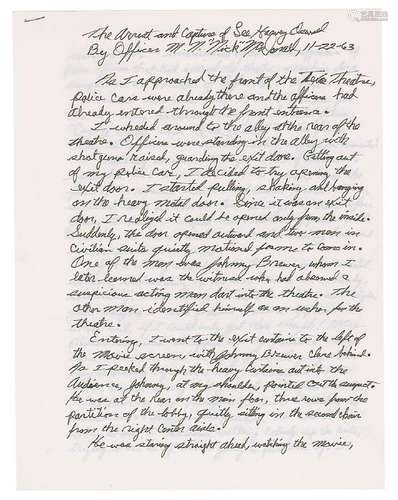 The Arrest and Capture of Lee Harvey Oswald
By Officer M. N. "Nick" McDonald, 11-22-63
As I approached the front of the Texas Theatre,
police cars were already there and the officers had
already entered through the front entrance.
I wheeled around to the alley at the rear of the
theatre. Officers were standing in the alley with
shotguns raised, guarding the exit doors. Getting out
of my police car, I decided to try opening the
exit door. I started pulling, shaking and banging
on the heavy metal door. Since it was an exit
door, I realized it could be opened only from the inside.
Suddenly, the door opened outward and two men in
civilian suits quietly motioned for me to come in.
One of the men was Johnny Brewer, whom I
later learned was the witness who had observed a
suspicious acting man dart into the theatre. The
other man identified himself as an usher for the
theatre.
Entering, I went to the exit curtains to the left of
the movie screen, with Johnny Brewer close behind.
As I peeked through the heavy curtains out into the
audience, Johnny, at my shoulder, pointed out the suspect.
He was at the rear on the main floor, three rows from the
partition of the lobby, quietly sitting in the second chair
from the right center aisle.
He was staring straight ahead, watching the movie,